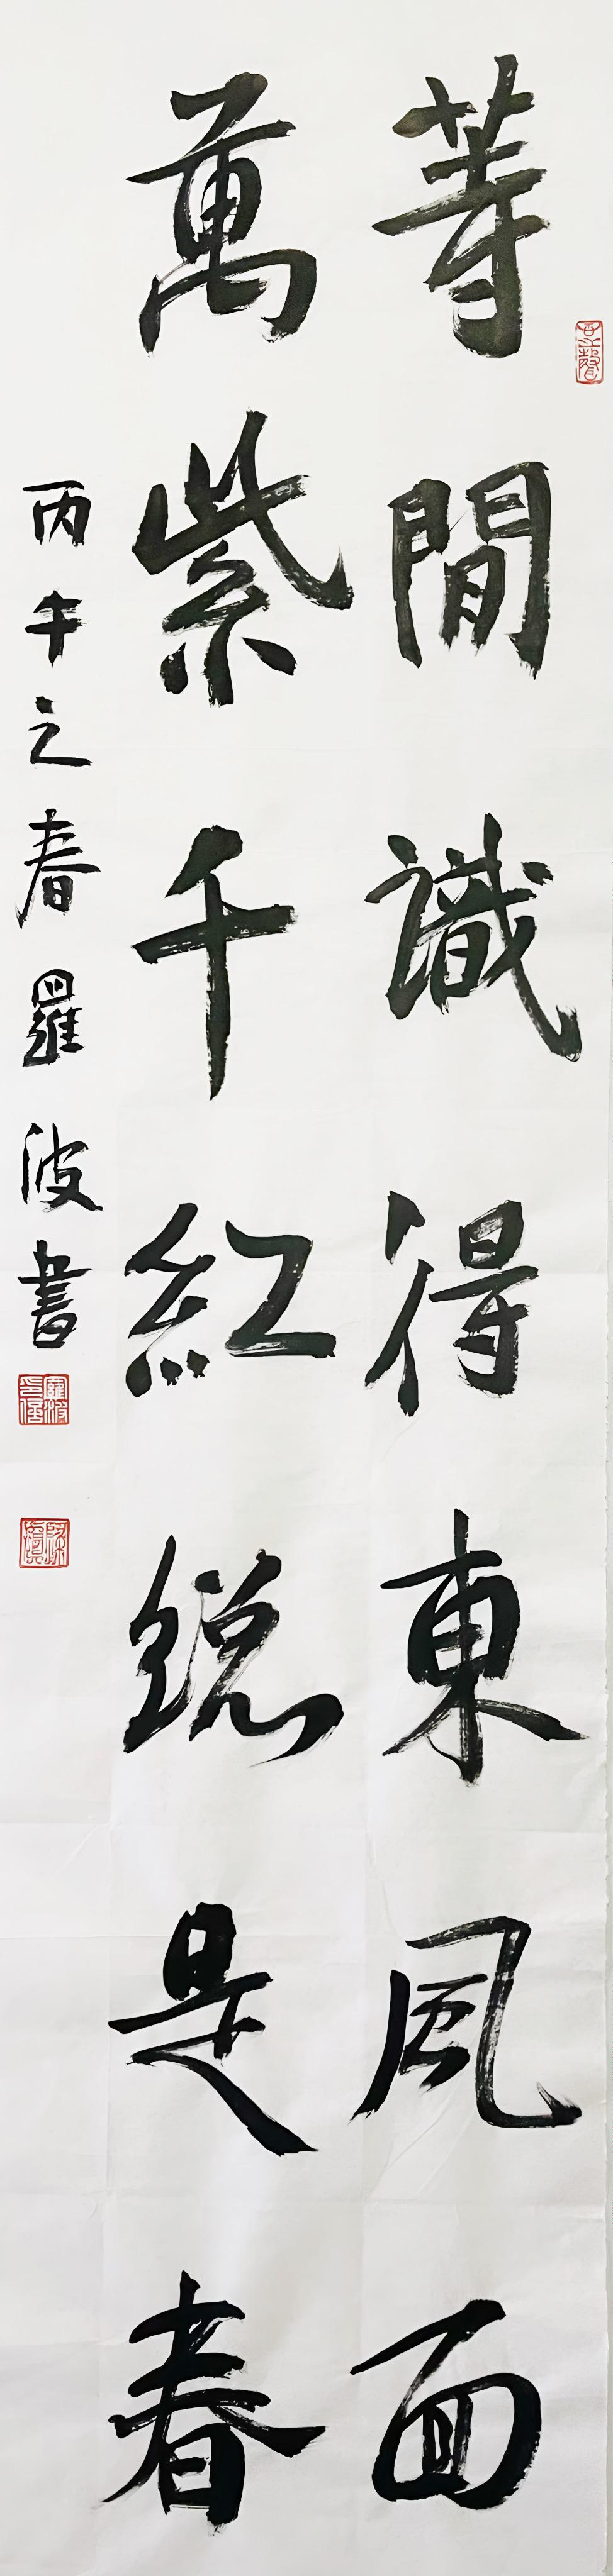 等間識得東風面
萬紫千紅總是春
丙午之春羅波書
羅波印信